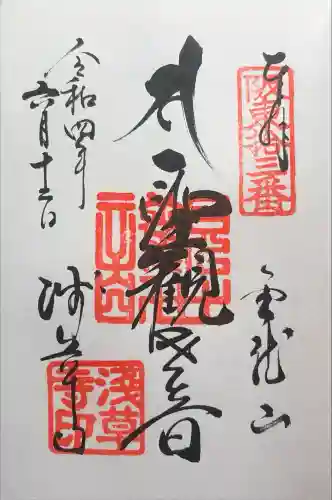 奉拝
坂東拾三番
金龍山
聖観世音
令和四年
六月十二日
浅草寺
浅草寺印